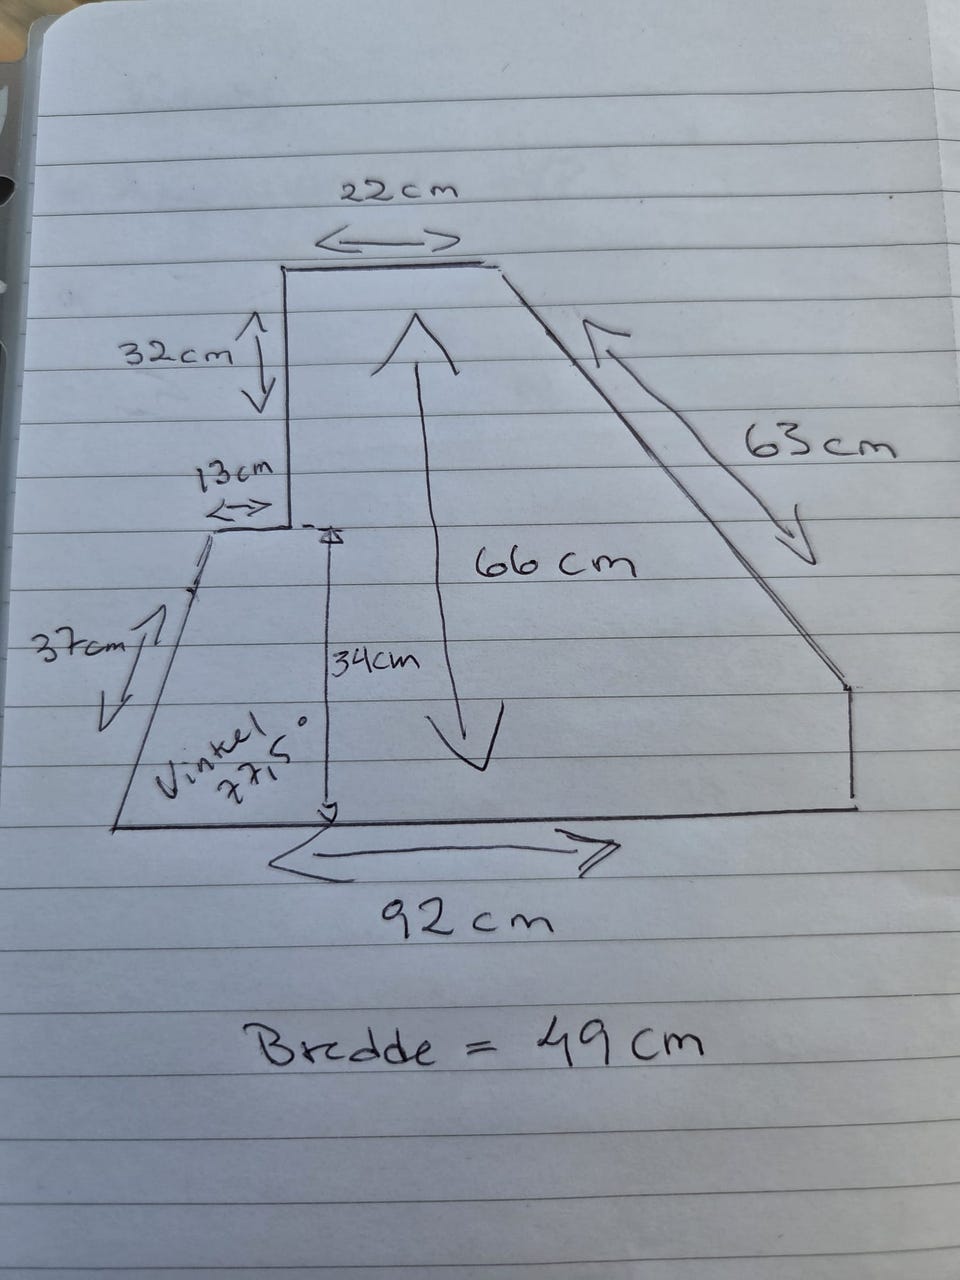 22cm
32cm
13cm
63cm
66 cm
37cm
34cm
Vinkel
77,5°
92 cm
Bredde = 49 cm